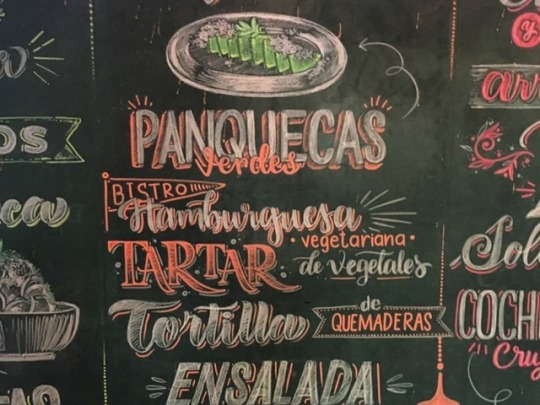 PANQUECAS
verdes
BISTRO
Hamburguesa
vegetariana
TARTAR de vegetales
Tortilla de QUEMADERAS
ENSALADA
y
COCHI